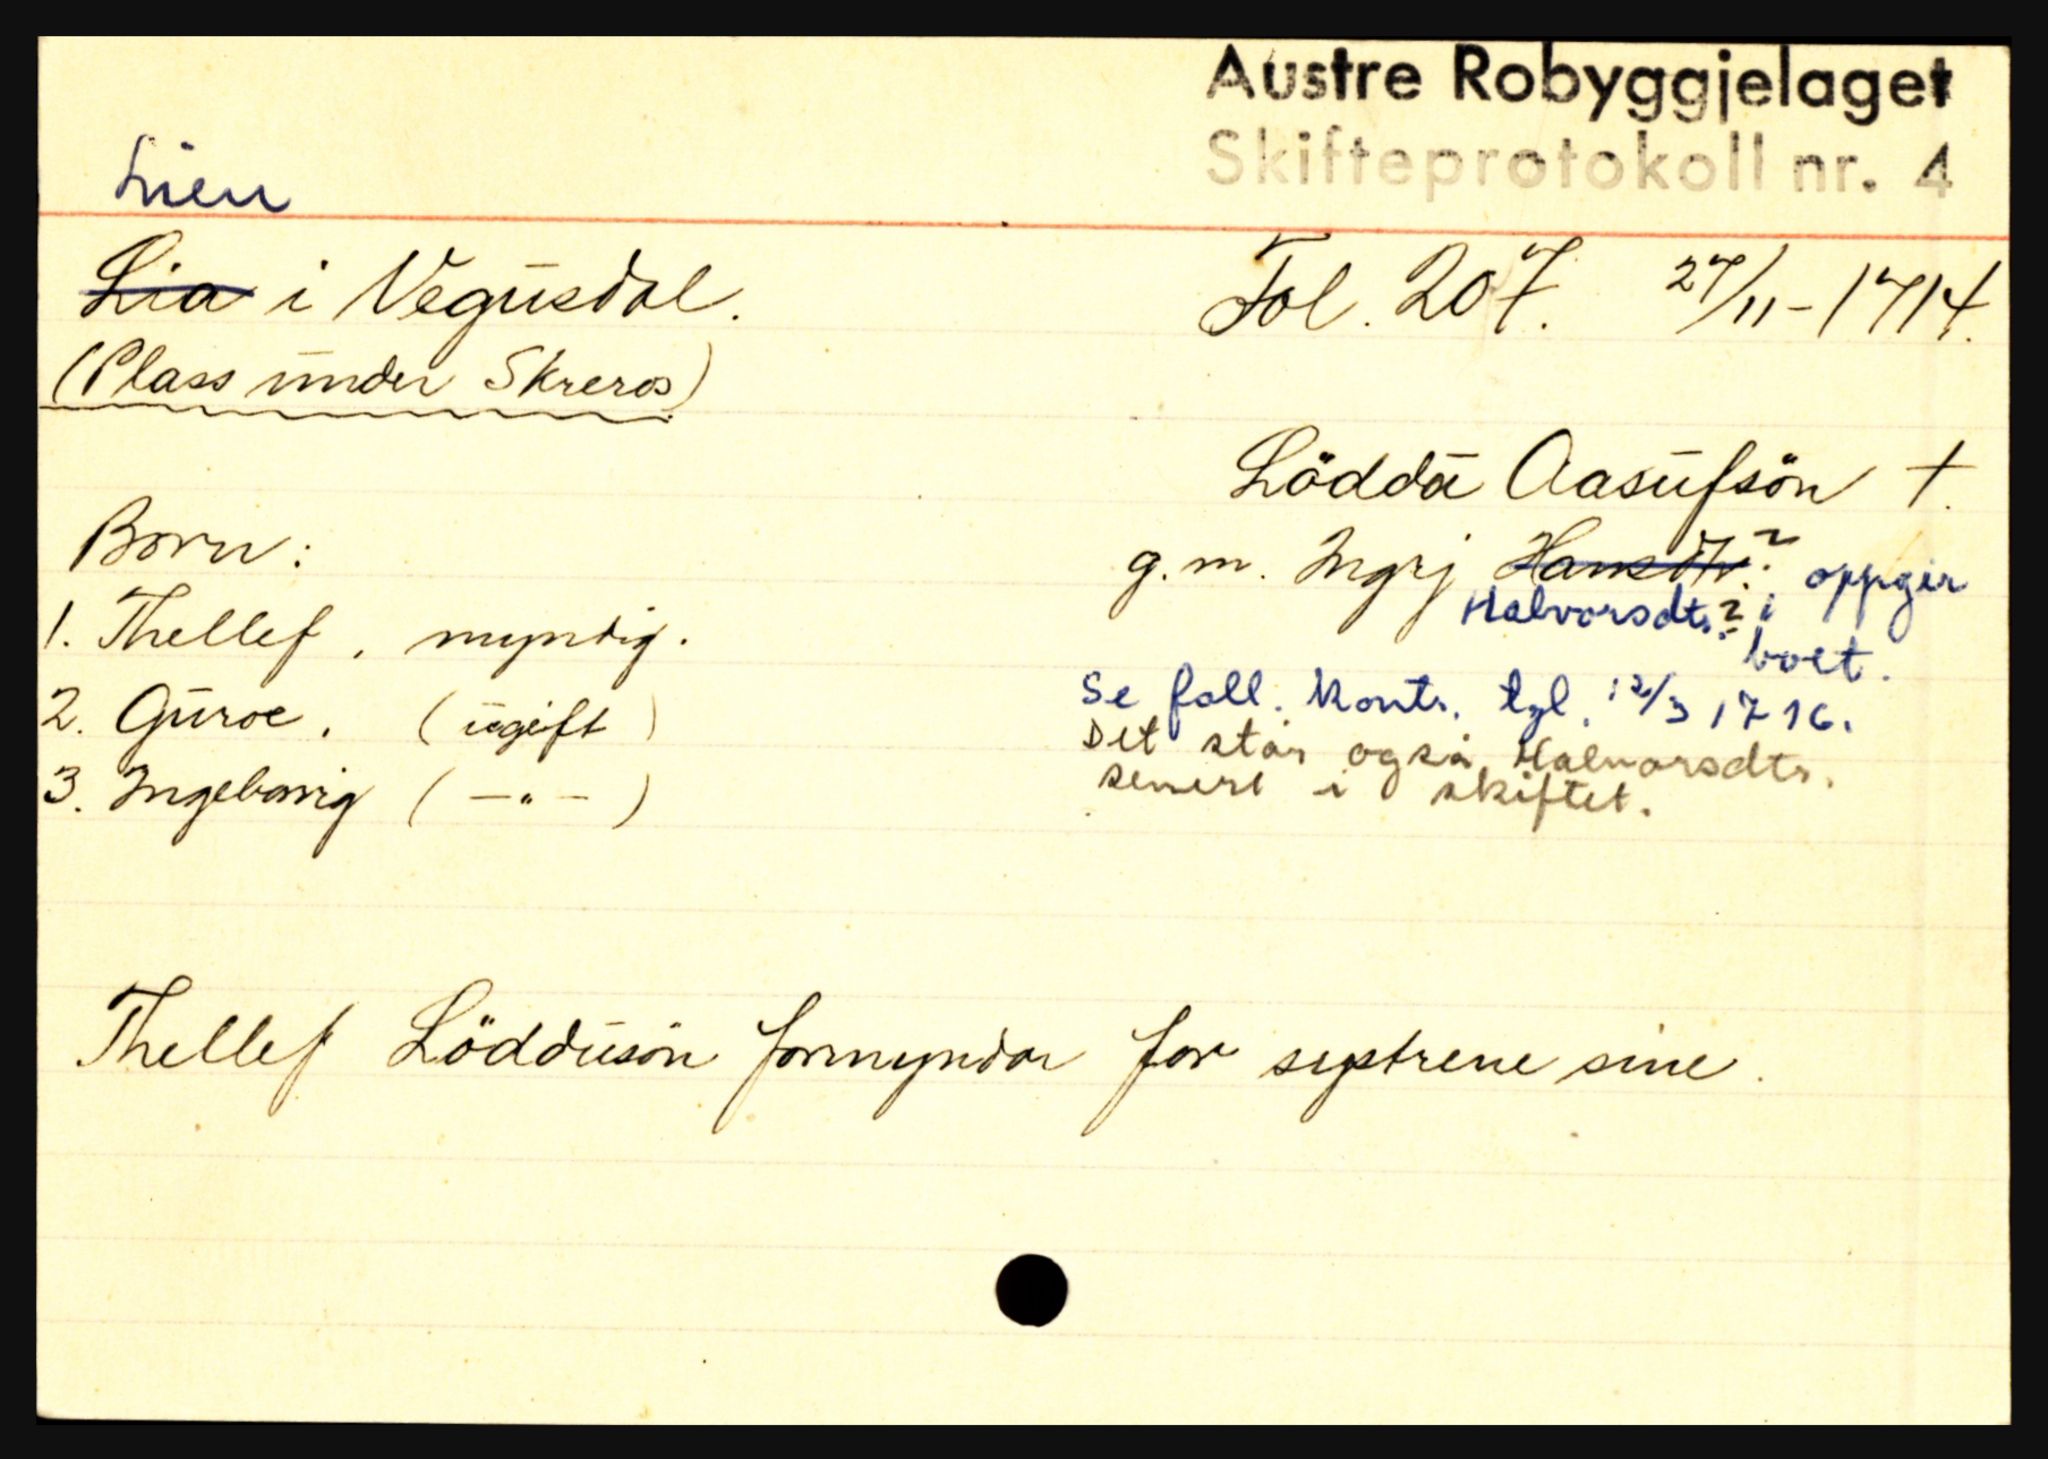 Austre Robyggjelaget
Skifteprotokoll nr. 4
Lien
Lia i Vegusdal.
Fol. 207. 27/11-1714.
(Plass under Skreros)
Löddu Aasufsön †.
Born:
g.m. Ingrj Hansdtr.? oppgir
Halvorsdtr.? i
boet.
1. Thellef, myndig.
2. Guroe, (ugift)
3. Ingeborrig (—"—)
Se fall. kontr. tgl. 12/3 1716.
Det står også Halvorsdtr.
senere i skiftet.
Thellef Löddusön formyndar for systrene sine.